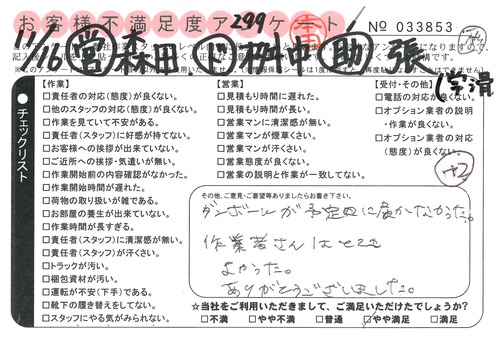 お客様不満足度アンケート
299
No 033853
11/16 営 森田 助 張
チェックリスト
【作業】
□責任者の対応(態度)が良くない。
□他のスタッフの対応(態度)が良くない。
□作業を見ていて不安がある。
□責任者(スタッフ)に好感が持てない。
□お客様への挨拶が出来ていない。
□ご近所への挨拶・気遣いが無い。
□作業開始前の内容確認がなかった。
□作業開始時間が遅れた。
□荷物の取り扱いが雑である。
□お部屋の養生が出来ていない。
□作業時間が長すぎる。
□責任者(スタッフ)に清潔感が無い。
□責任者(スタッフ)が汗くさい。
□トラックが汚い。
□梱包資材が汚い。
□運転が不安(下手)である。
□靴下の履き替えをしてない。
□スタッフにやる気がみられない。
【営業】
□見積もり時間に遅れた。
□見積もり時間が長い。
□営業マンに清潔感が無い。
□営業マンが煙草くさい。
□営業マンが汗くさい。
□営業態度が良くない。
□営業の説明と作業が一致してない。
【受付・その他】
□電話の対応が良くない。
□オプション業者の説明
・作業が良くない。
□オプション業者の対応
(態度)が良くない。
その他、ご意見・ご要望等ありましたらお書き下さい。
ダンボールが予定日に届かなかった。
作業者さんはとても
よかった。
ありがとうございました。
☆当社をご利用いただきまして、ご満足いただけたでしょうか?
□不満 □やや不満 □普通 □やや満足 □満足